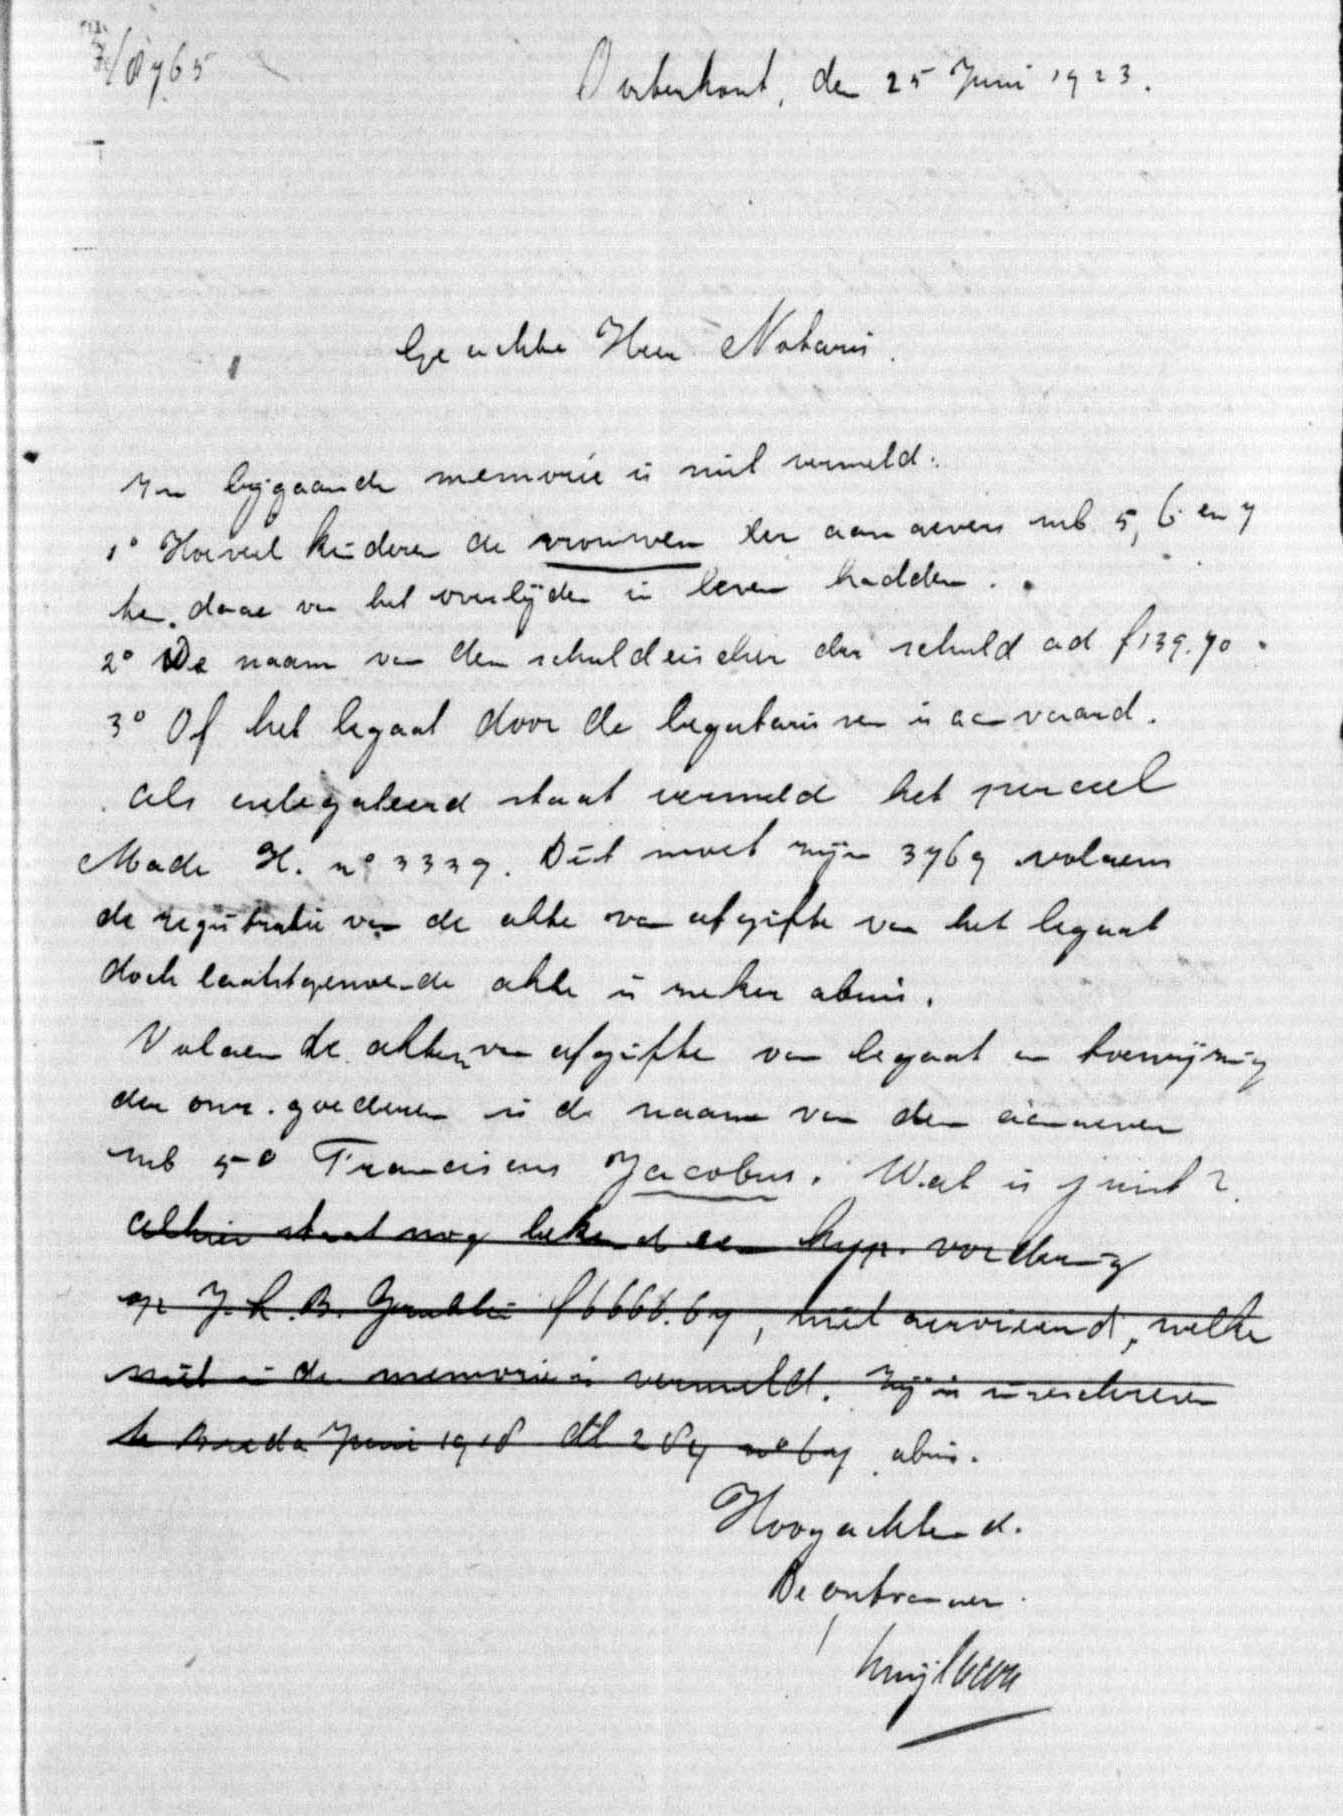 7/8765
Oosterhout, den 25 Juni 1923.
Geachte Heer Notaris.
In bijgaande memorie is niet vermeld:
1° Hoeveel kinderen de vrouwen der aangevers sub 5, 6 en 7
ten dage van het overlijden in leven hadden.
2° De naam van den schuldeischer der schuld ad f 139.70.
3° Of het legaat door de legatarissen is aanvaard.
Als gelegateerd staat vermeld het perceel
Made H. n° 3339. Dit moet zijn 3769 volgens
de registratie van de akte van afgifte van het legaat
doch laatstgenoemde akte is zeker abuis.
Volgens de akten van afgifte van legaat en toewijzing
der onr. goederen is de naam van den aangever
sub 5° Franciscus Jacobus. Wat is juist?
Alhier staat nog bekend een hyp. vordering
op J. C. B. f 6666.67, niet geroieerd, welke
niet in de memorie is vermeld. Zij is ingeschreven
te Breda Juni 1918 dl 287 n° 67 abuis.
Hoogachtend.
De ontvanger.